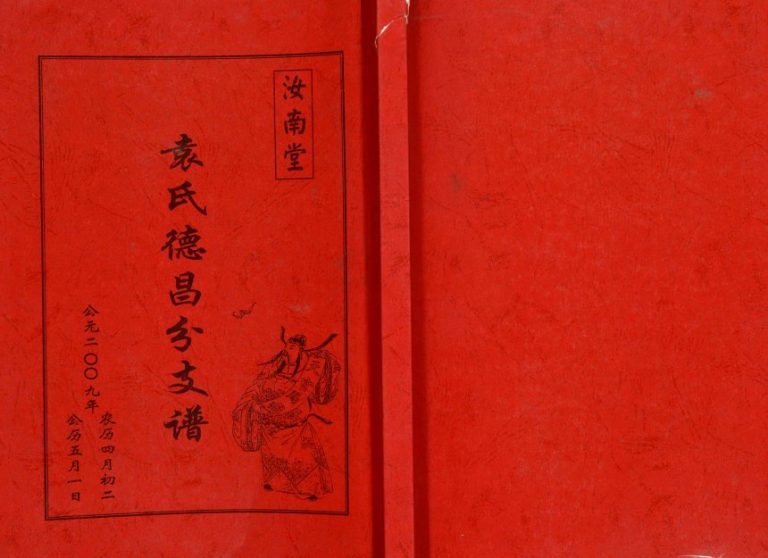 汝南堂
袁氏德昌分支谱
公元二〇〇九年
农历四月初二
公历五月一日